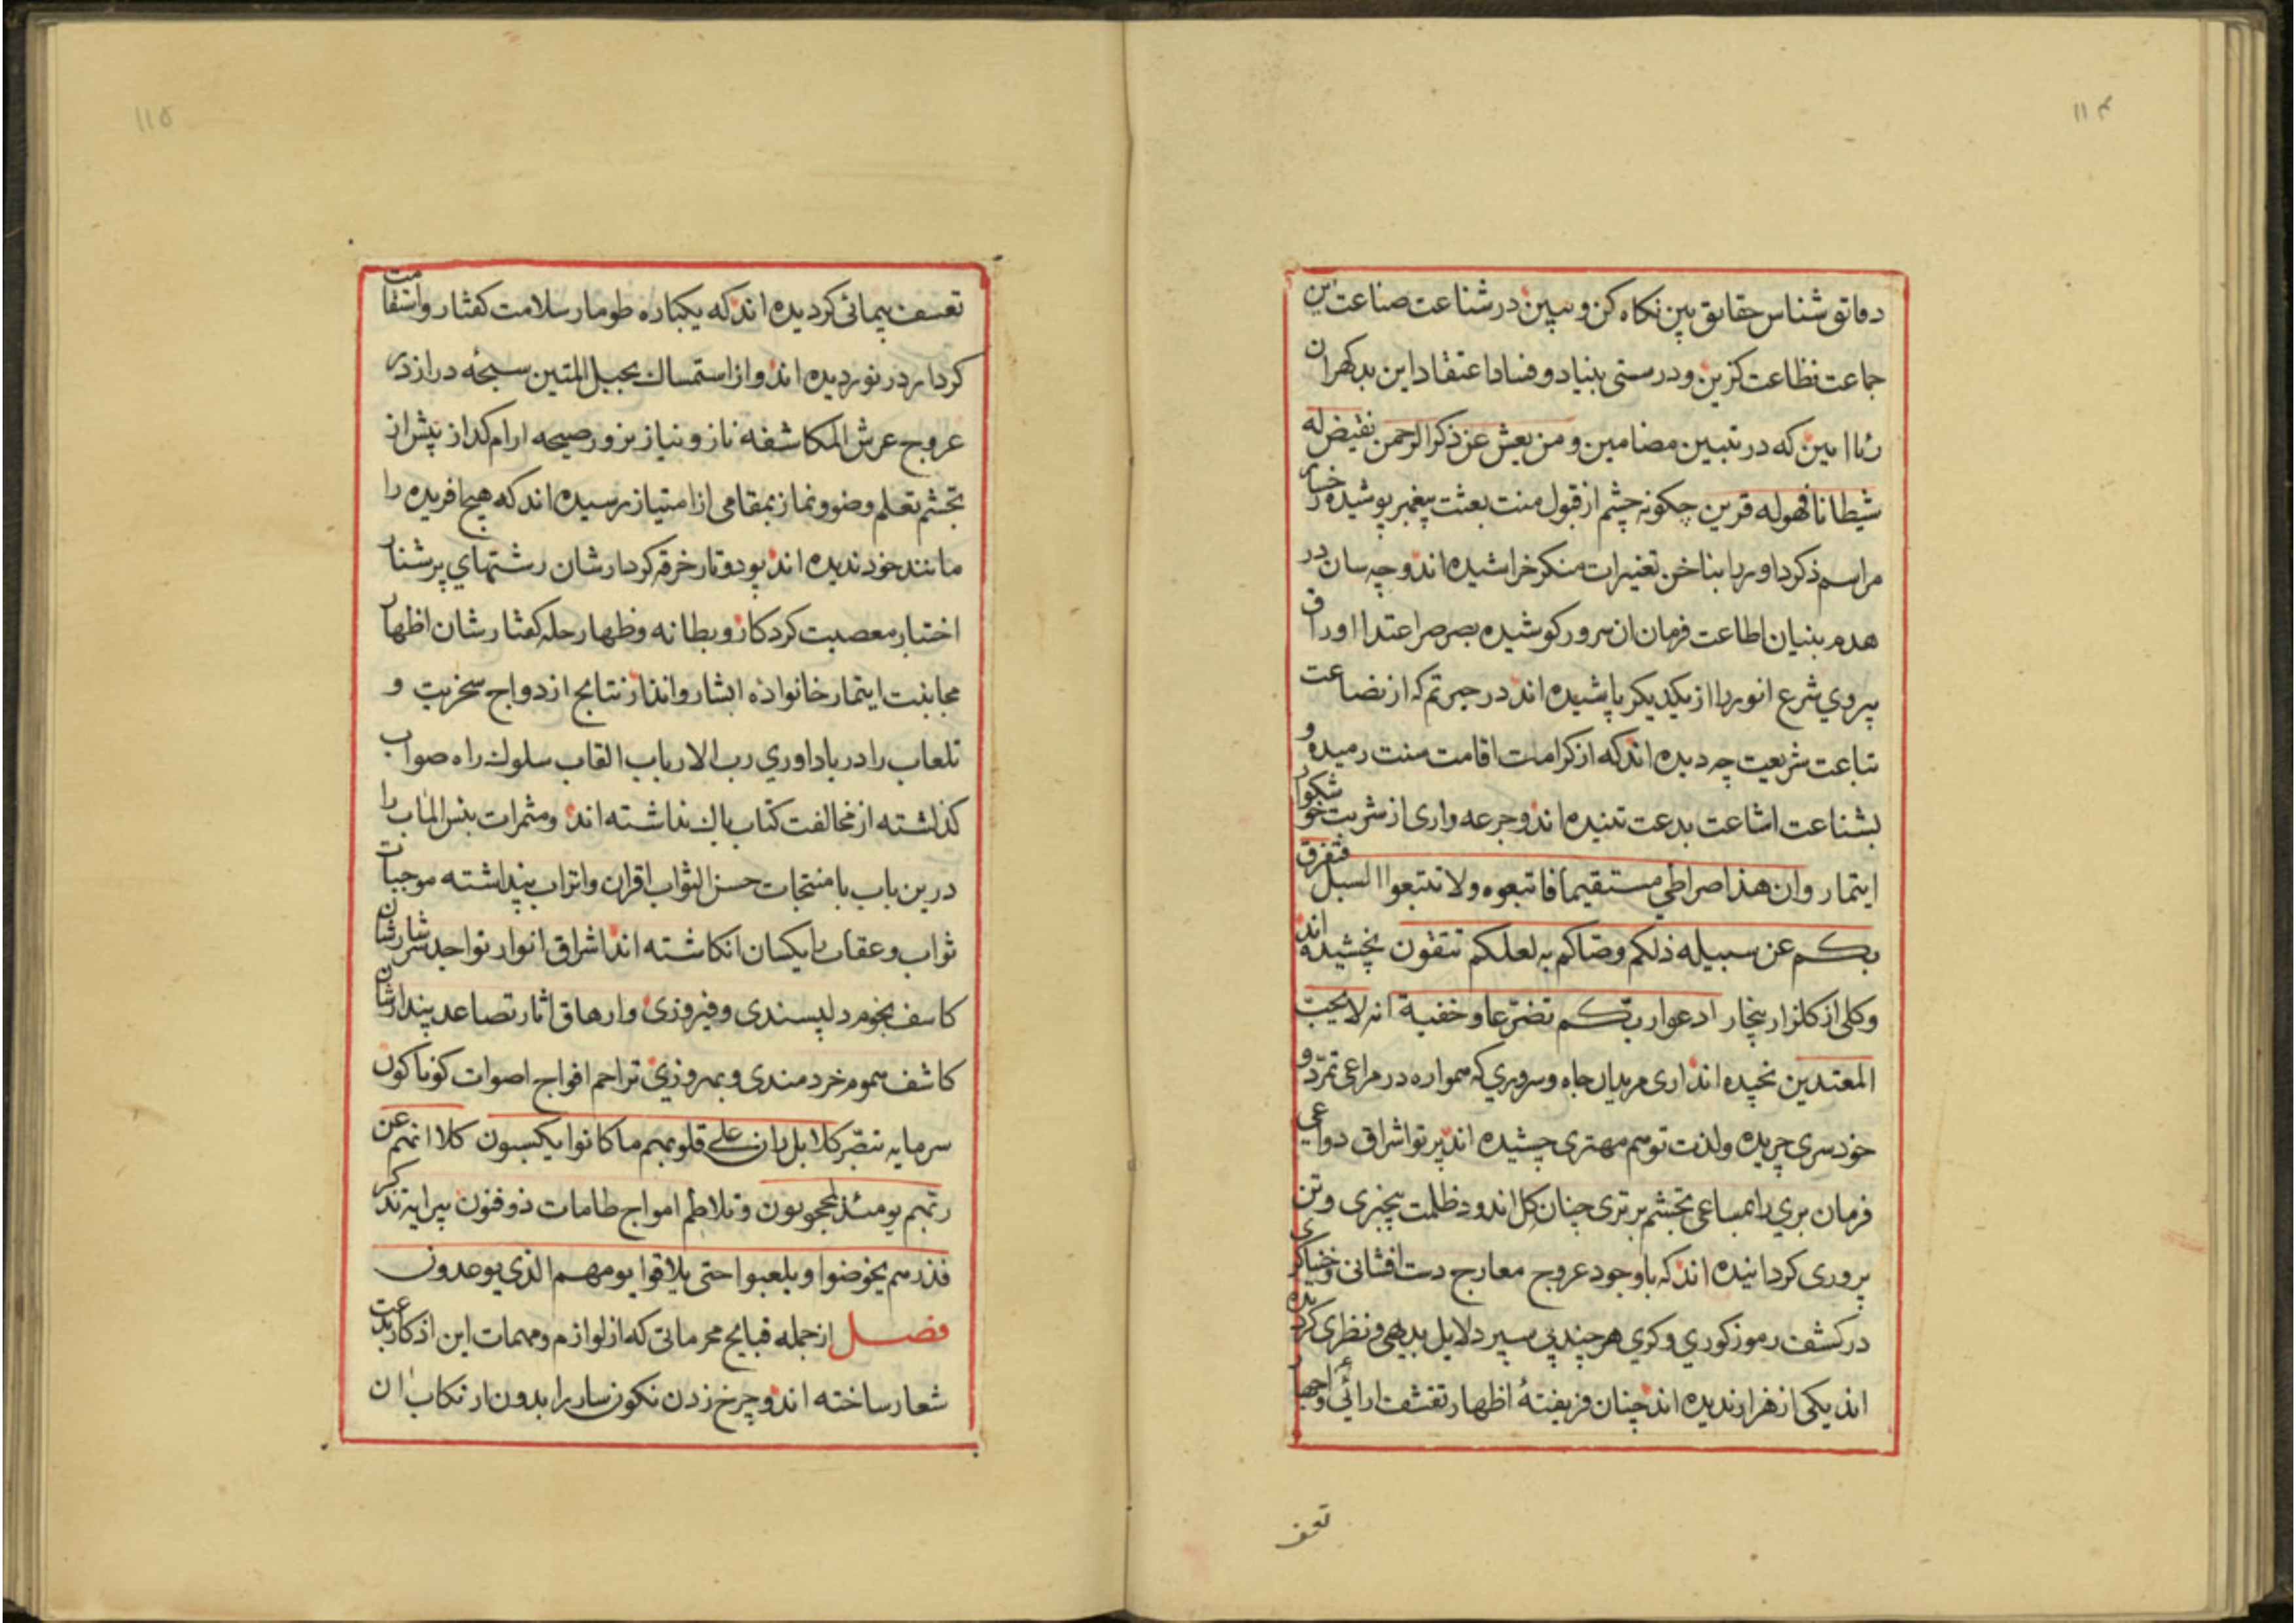 ۱۱۴
دقائق شناس حقایق بین نکاه کن و ببین در شناعت صناعت این
جماعت فظاعت کزین و در سستی بنیاد و فساد اعتقاد این بدکهران
که در تبیین مضامین و من یعش عن ذکر الرحمن نقیض له
شیطانا فهو له قرین چکونه چشم از قبول منت بعثت پیغمبر پوشیده رخسار
مراسم ذکر داور را بناخن تغییرات منکر خراشیده اند و چه سان در
هدم بنیان اطاعت فرمان ان سرور کوشیده بصرصر اعتدا اوراق
پیروي شرع انور را از یکدیکر پاشیده اند در حیرتم که از بضاعت
تباعت شریعت چه دیده اند که از کرامت اقامت سنت رمیده و
بشناعت اشاعت بدعت تنیده اند و جرعه واری از شربت خوشکوار
ایتمار و ان هذا صراطي مستقیما فاتبعوه ولا تتبعوا السبل فتفرق
بکم عن سبیله ذلکم وصّاکم به لعلکم تتقون نچشیده اند
و کلی از کلزار بنجار ادعوا ربّکم تضرّعا و خفیة انه لا یحبّ
المعتدین نچیده اند اری مریدان جاه و سروري که همواره در مراعی تمرّد و
خود سری چریده و لذت توهم مهتری چشیده اند پرتو اشراق دواعي
فرمان بري را بمساعی تجشم برتری چنان کل اندود ظلمت بیخبری و تن
پروری کردانیده اند که باوجود عروج معارج دست افشانی و خنیاکری
در کشف رموز کوري و کري هر چند پی سپر دلایل بدیهی و نظری کردیده
اند یکی از هزار ندیده اند چنان فریفتهٔ اظهار تقشف ارائی و اجهار
تعسف
۱۱۵
تعسف پیمائی کردیده اند که یکباره طومار سلامت کفتار و استقامت
کردار در نوردیده اند و از استمساک بحبل المتین سبحهٔ دراز در
عروج عرش المکاشفه ناز و نیاز بزور صیحه ارام کداز پیش از
تجشم تعلم وضو و نماز بمقامی از امتیاز رسیده اند که هیچ افریده را
مانند خود ندیده اند پود و تار خرقه کردارشان رشتهاي پرشنار
اختبار معصیت کردکار و بطانه و ظهار حله کفتارشان اظهار
مجانبت ایتمار خانواده ابشار و انذار نتایج ازدواج سخریت و
تلعاب را در یاداوري رب الارباب القاب سلوک راه صواب
کذاشته از مخالفت کتاب باک نداشته اند و مثمرات بئس الماب را
درین باب با منتجات حسن الثواب اقران و اتراب پنداشته موجبات
ثواب و عقاب را یکسان انکاشته اند اشراق انوار تواجد سرشارشان
کاسف نجوم دلپسندی و فیروزی و ارهاق اثار تصاعد پندارشان
کاشف هموم خردمندی و بهروزي تراحم افواج اصوات کوناکون
سرمایه تبصّر کلا بل ران علی قلوبهم ما کانوا یکسبون کلا انهم عن
ربّهم یومئذ لمحجوبون و تلاطم امواج طامات ذو فنون پیرایه تذکر
فذرهم یخوضوا و یلعبوا حتی یلاقوا یومهم الذي یوعدون
فصل از جمله قبایح محرماتی که از لوازم و مهمات این اذکار بدعت
شعار ساخته اند و چرخ زدن نکونسار را بدون ارتکاب ان